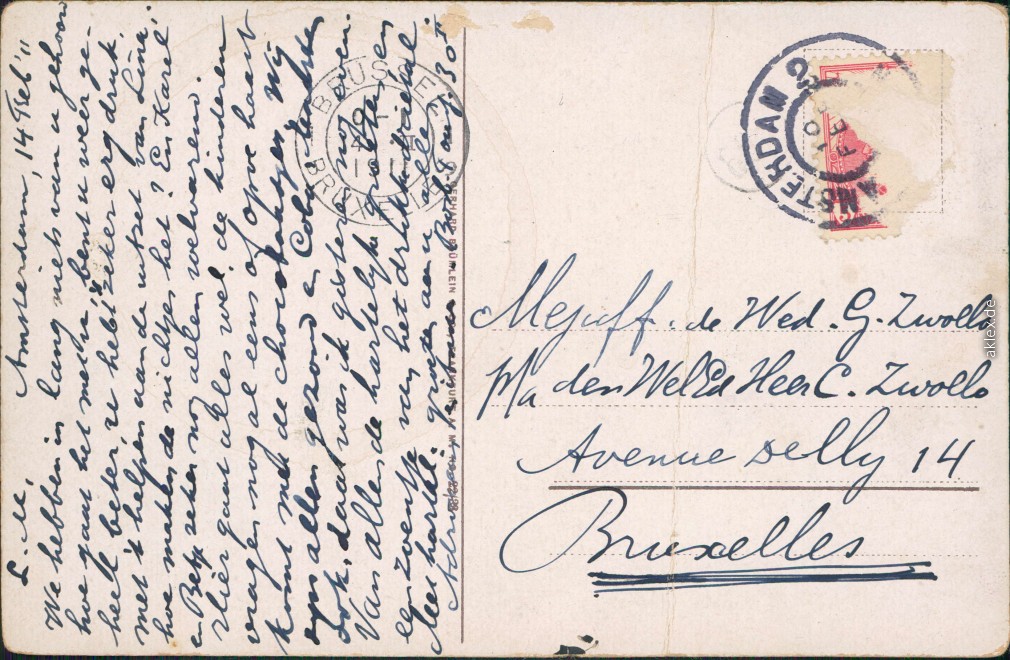 Amsterdam, 14 Feb '11
L. M,
We hebben in lang niets van u gehoord
hoe gaat het met u, bent u weer ge-
heel beter, u hebt zeker erg druk,
met 't helpen aan de uitzet van Lina.
hoe maken de nichtjes het? En Karel
en Betsy zeker nog allen welvarend
Hier gaat alles wel, de kinderen
vragen nog al eens of Opoe haast
komt met de chocolaatjes. Wij
zijn allen gezond en Coba tenten
ook, daar was ik gisteren nog even.
Van allen de hartelijke groeten en
een zoentje van het drietal
Met hartel. groete aan u allen
BRUSSEL
BRUXELLES
AMSTERDAM
FEB
Mejuff. de Wed. G. Zwollo
p/a den WelEd Heer C. Zwollo
Avenue Delly 14
Bruxelles
aklex.de